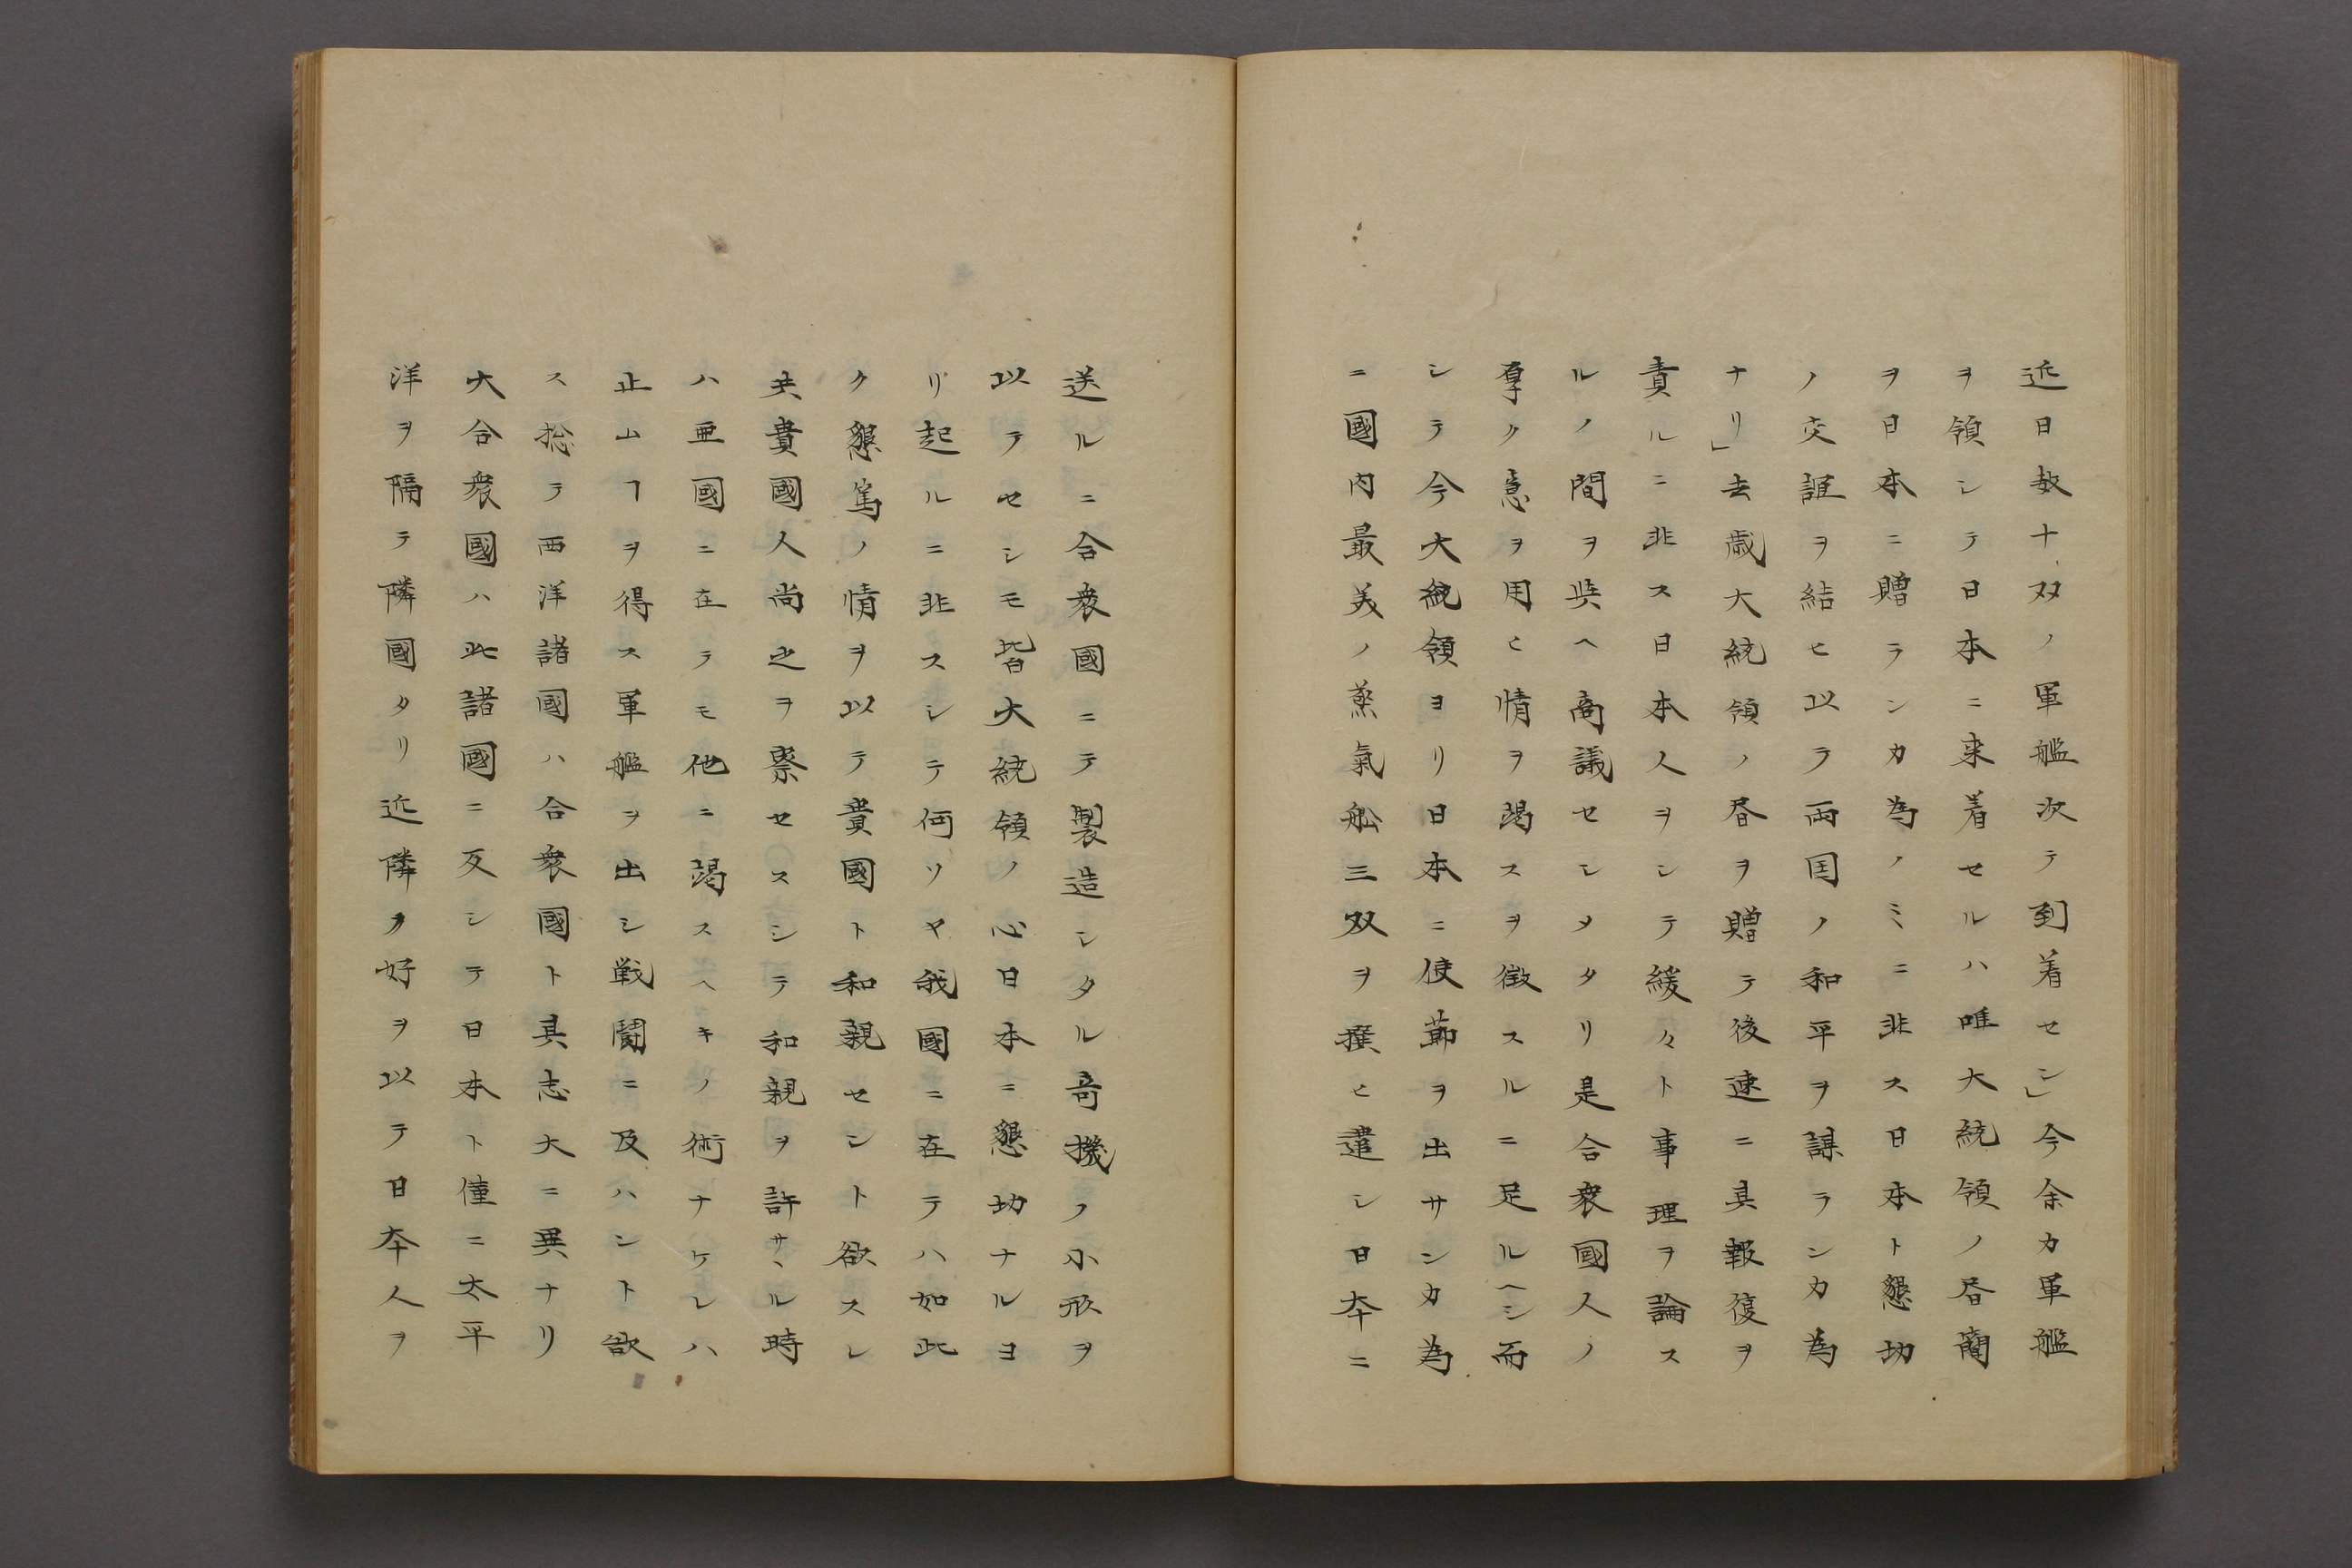 近日数十双ノ軍艦次テ到着セン」今余カ軍艦
ヲ領シテ日本ニ来着セルハ唯大統領ノ昏簡
ヲ日本ニ贈ラシカ為ノミニ非ス日本ト懇切
ノ交誼ヲ結ヒ以テ両国ノ和平ヲ謀ランカ為
ナリ」去歳大統領ノ昏ヲ贈テ後速ニ其報復ヲ
責ルニ非ス日本人ヲシテ緩々ト事理ヲ論ス
ルノ間ヲ與ヘ商議セシメタリ是合衆國人ノ
厚ク意ヲ用ヒ情ヲ竭スヲ徴スルニ足ルヘシ而
シテ今大統領ヨリ日本ニ使節ヲ出サンカ為
ニ國内最美ノ蒸氣舩三双ヲ撰ヒ遣シ日夲ニ
送ルニ合衆國ニテ製造シタル奇機ノ小形ヲ
以テセシモ皆大統領ノ心日本ニ懇切ナルヨ
リ起ルニ非スシテ何ソヤ我國ニ在テハ如此
ク懇篤ノ情ヲ以テ貴國ト和親セント欲スレ
共貴國人尚之ヲ察セスシテ和親ヲ許サヽル時
ハ亜國ニ在テモ他ニ竭スヘキノ術ナケレハ
止ムヿヲ得ス軍艦ヲ出シ戦鬪ニ及ハント欲
ス捴テ西洋諸國ハ合衆國ト其志大ニ異ナリ
大合衆國ハ此諸國ニ反シテ日本ト僅ニ太平
洋ヲ隔テ隣國タリ近隣ヲ好ヲ以テ日夲人ヲ